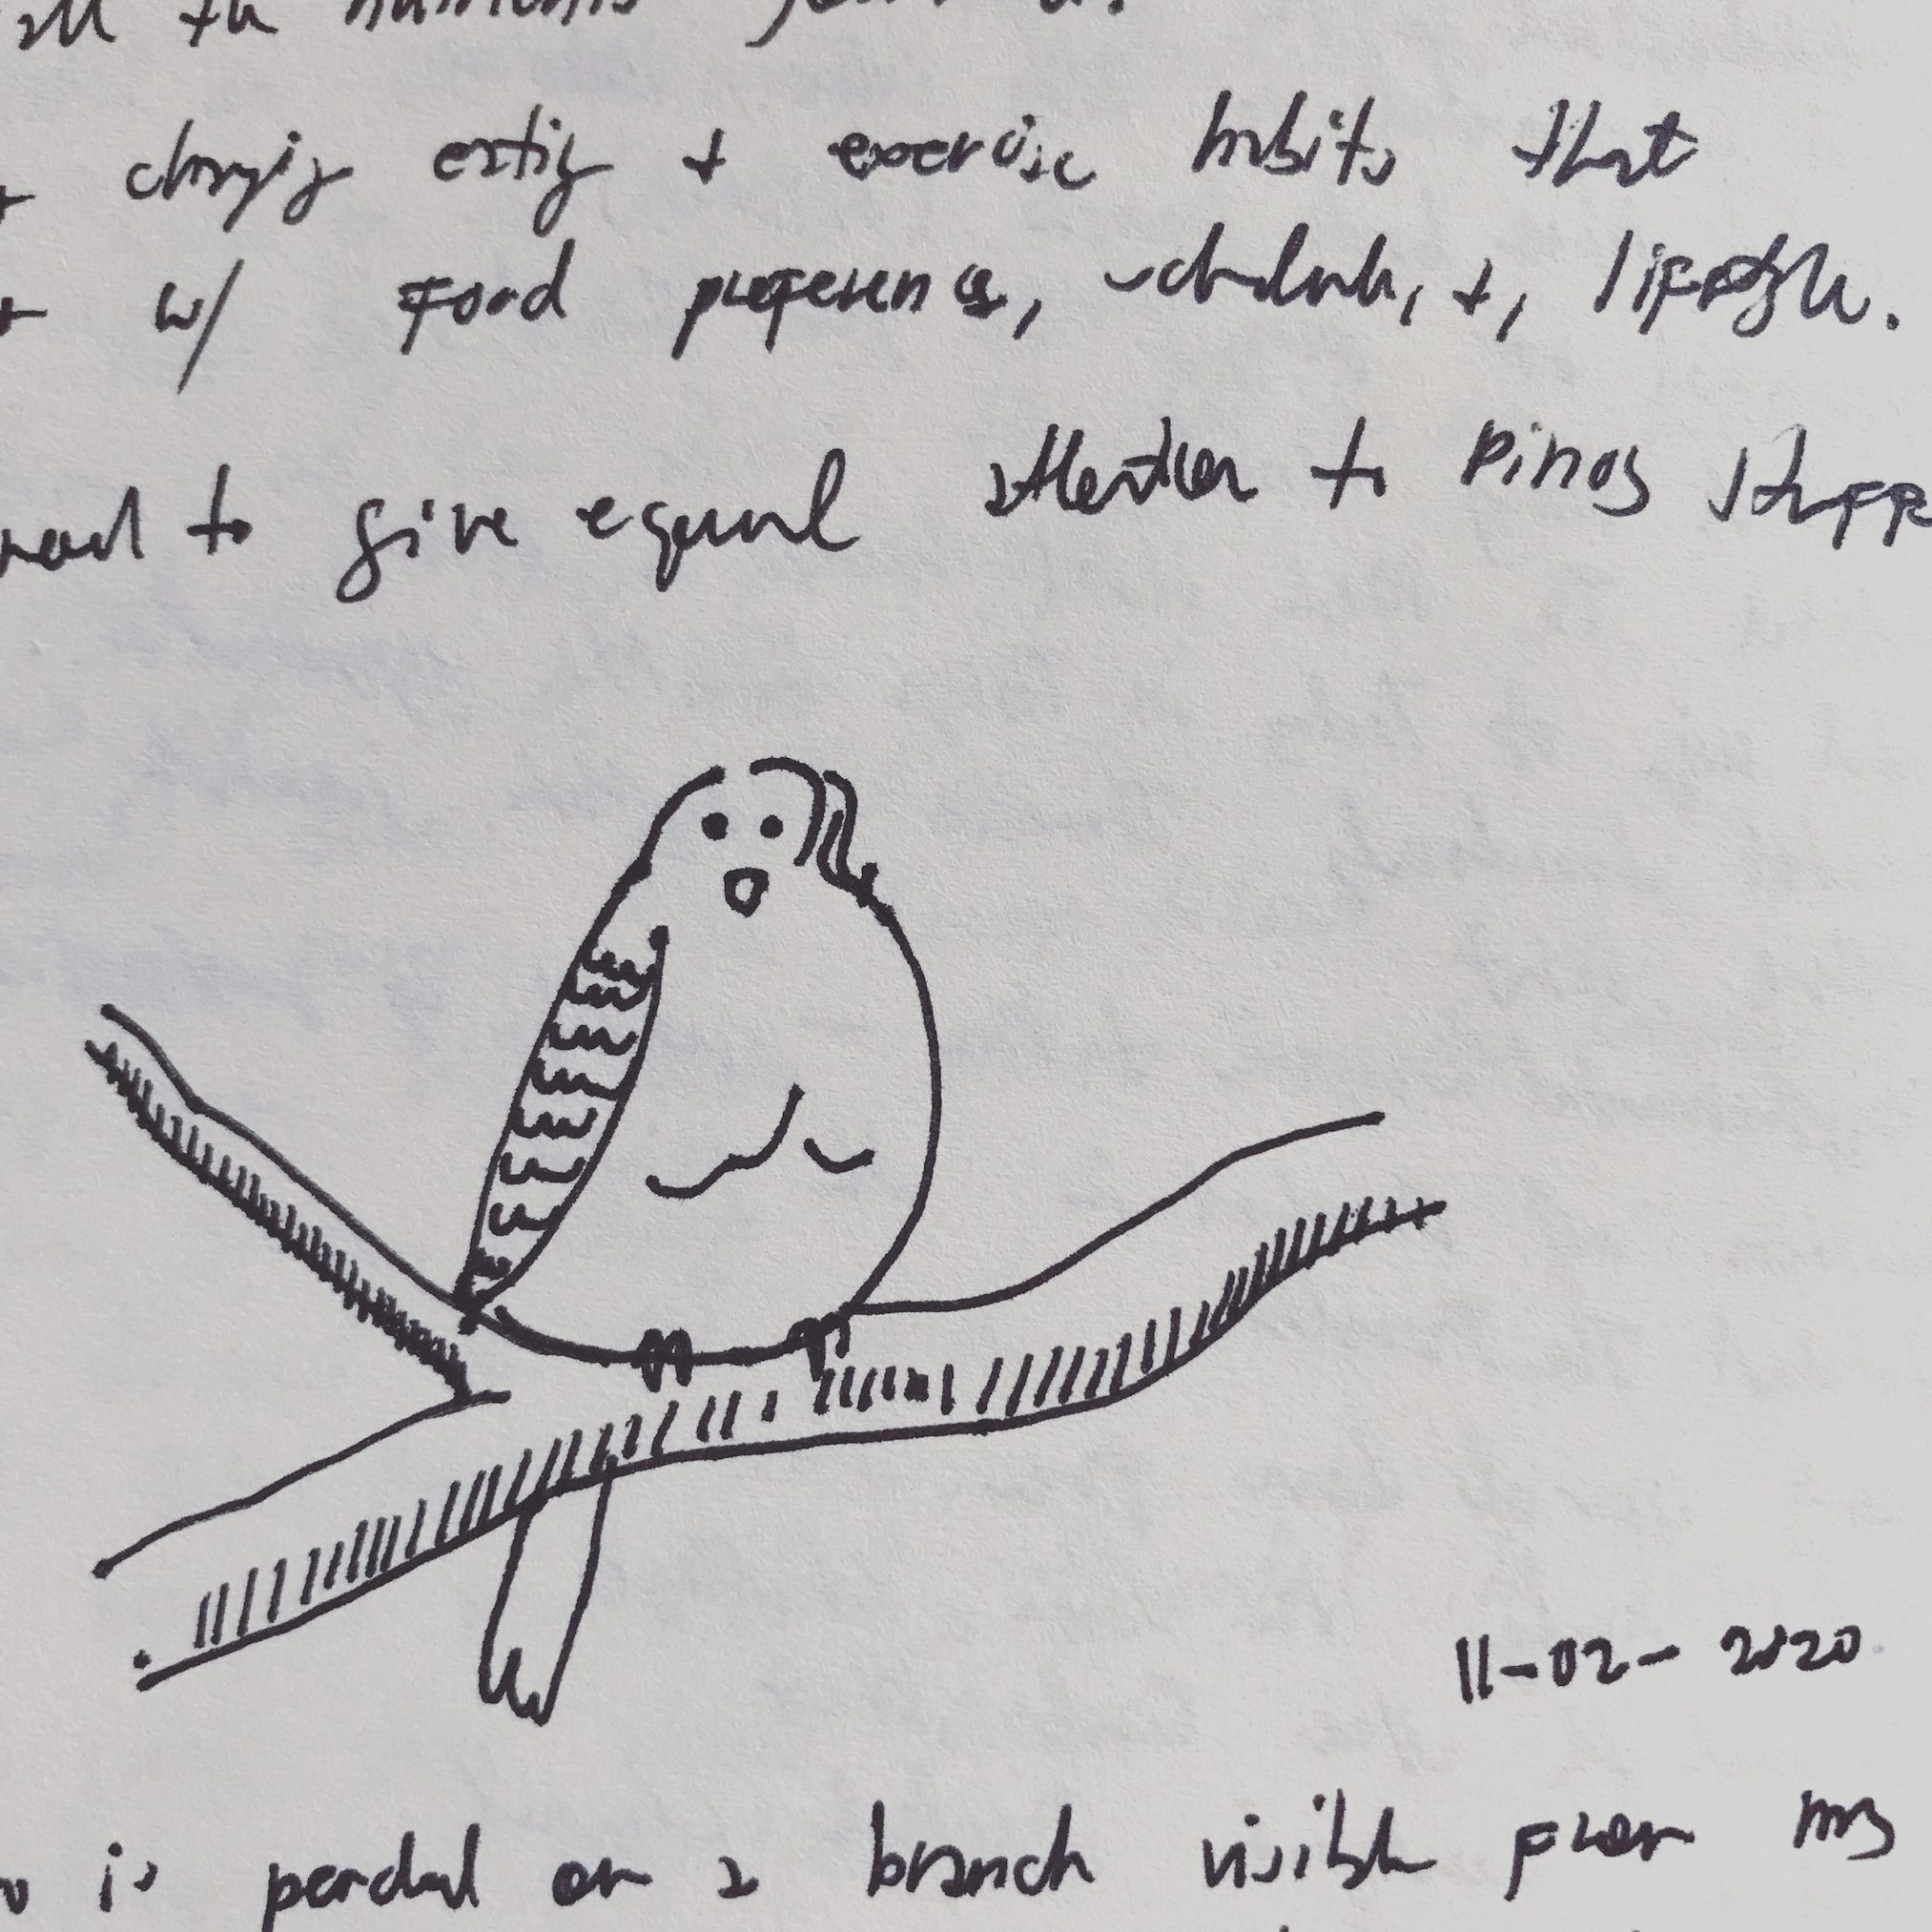 all the nutrients
changing eating + exercise habits that
w/ food preferences, schedule, +, lifestyle.
need to give equal attention to
11-02-2020
is perched on a branch visible from my